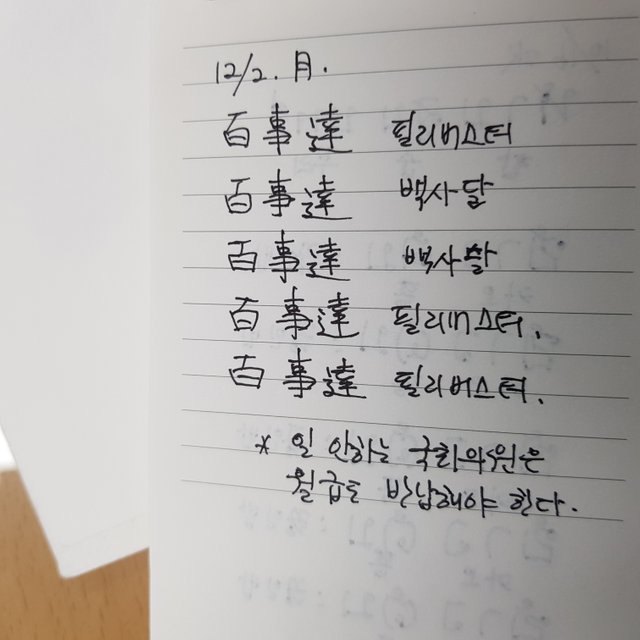 12/2. 月.
百事達 필리버스터
百事達 백사달
百事達 백사달
百事達 필리버스터.
百事達 필리버스터.
* 일 안하는 국회의원은
월급도 반납해야 한다.